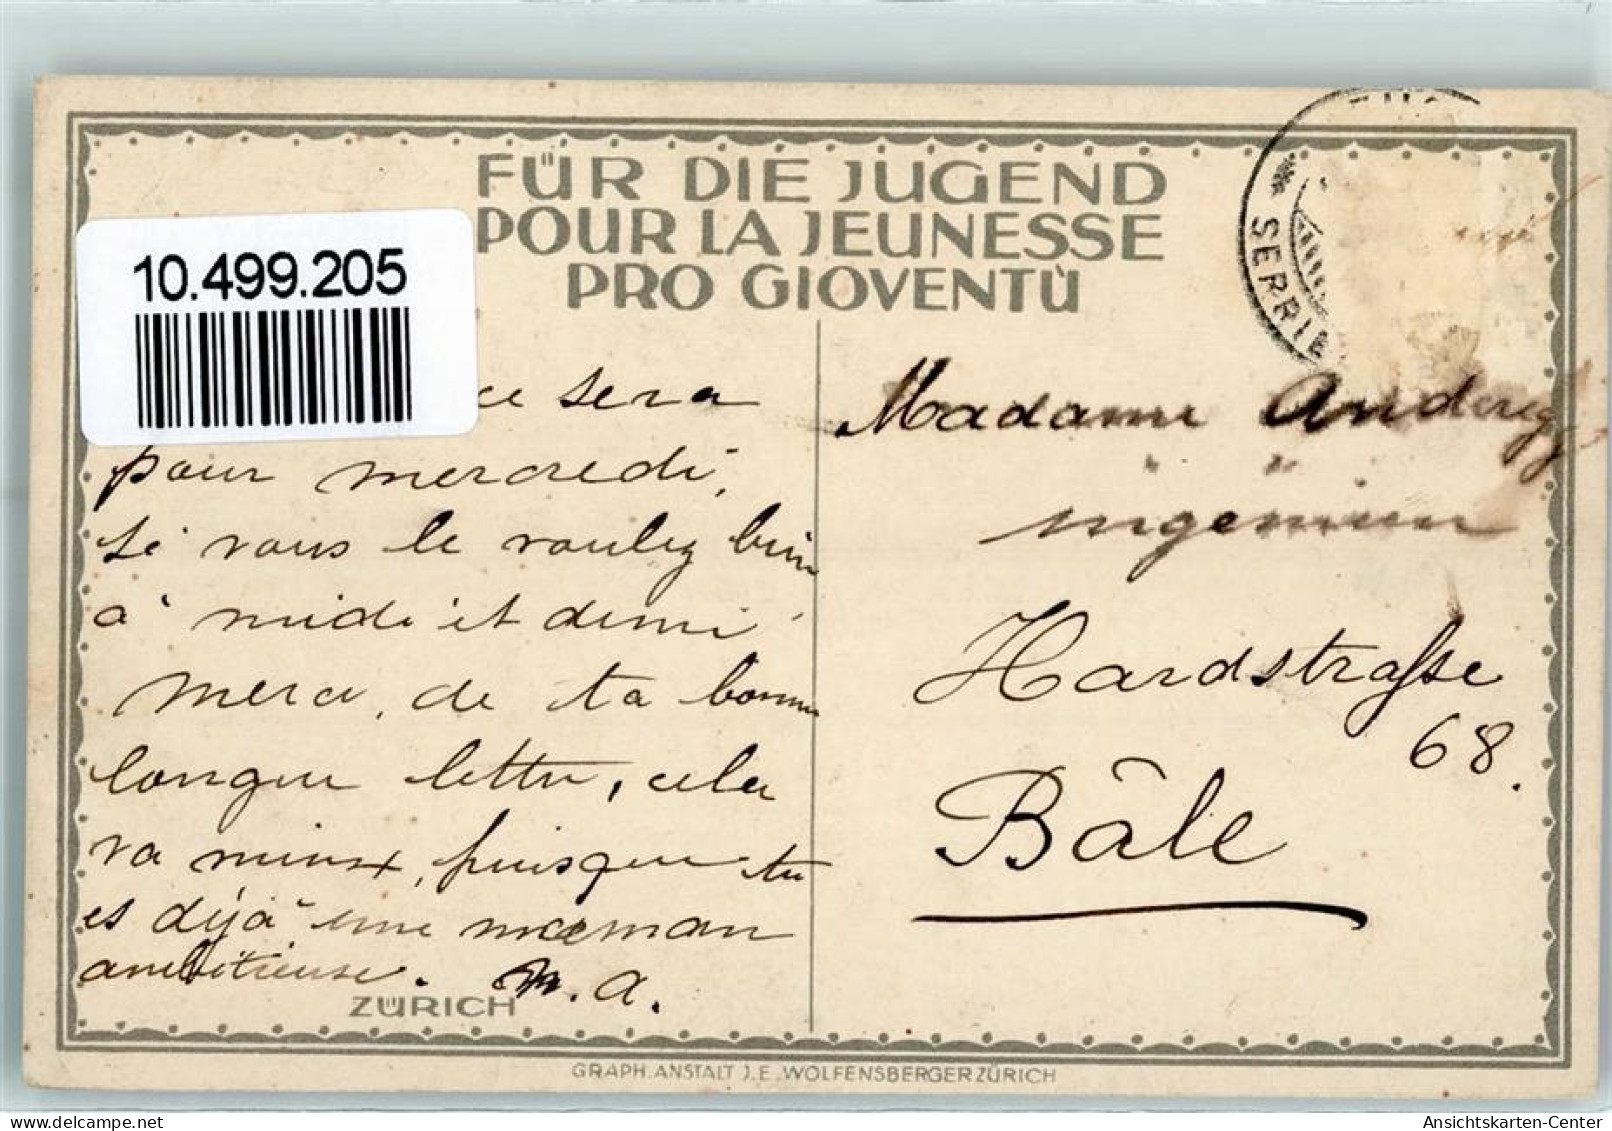 FÜR DIE JUGEND
POUR LA JEUNESSE
PRO GIOVENTÙ
10.499.205
SERRIE
ce sera
pour mercredi,
si vous le voulez bien
à midi et demi
merci, de ta bonne
longue lettre, cela
va mieux, puisque tu
es déjà une maman
ambitieuse. M. A.
ZÜRICH
Madame Anderegg
ingénieur
Hardstraſse
68.
Bâle
GRAPH. ANSTALT J. E. WOLFENSBERGER ZÜRICH
Ansichtskarten-Center